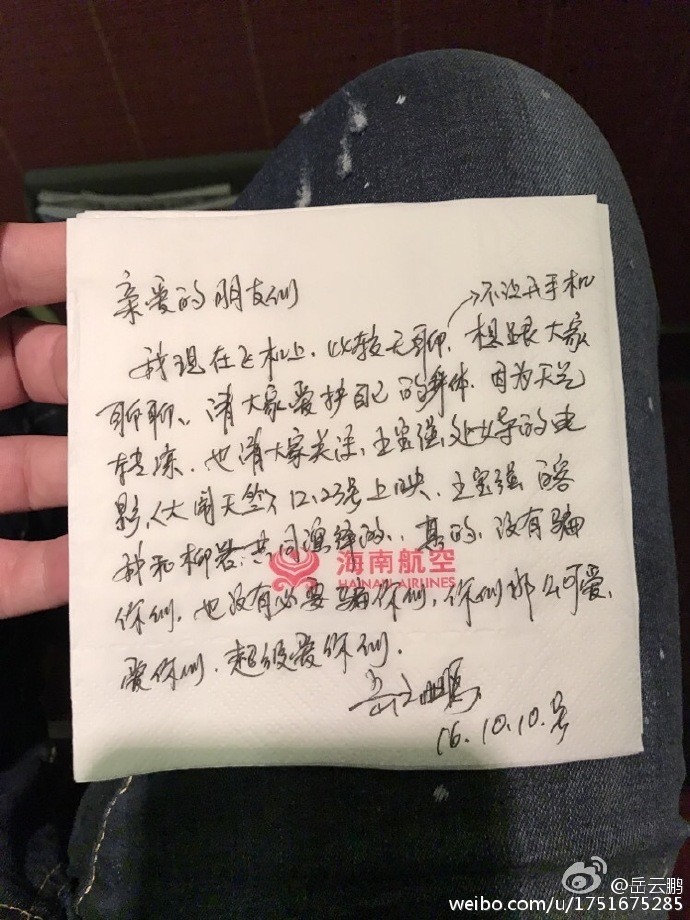 亲爱的朋友们
→不让开手机
我现在飞机上，比较无聊，想跟大家
聊聊，请大家爱护自己的身体，因为天气
转凉，也请大家关注，王宝强处女导的电
影，《大闹天竺》12.23号上映，王宝强 白客
我和柳岩共同演绎的，真的，没有骗
你们，也没有必要骗你们，你们那么可爱，
爱你们，超级爱你们.
岳云鹏
16.10.10.号
海南航空
HAINAN AIRLINES
@岳云鹏
weibo.com/u/1751675285